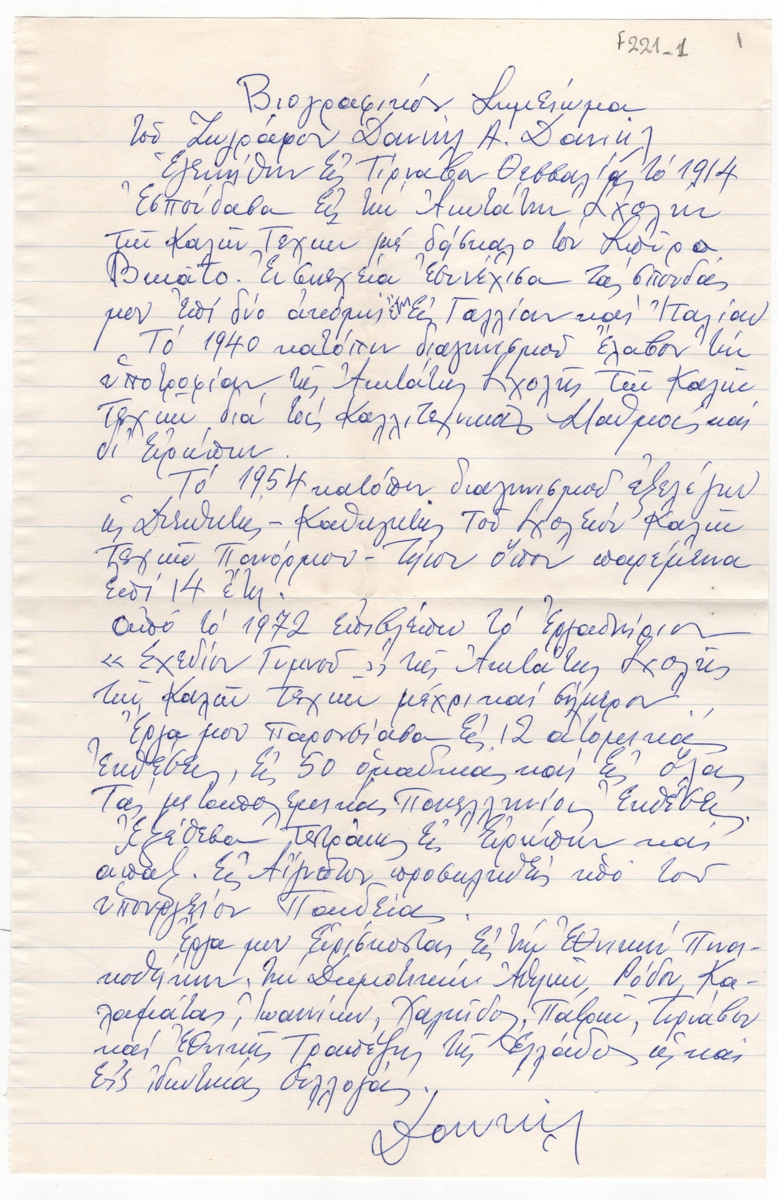 F221-1 1
Βιογραφικόν Σημείωμα
τοῦ Ζωγράφου Δανιήλ Α. Δανιήλ
Ἐγεννήθην εἰς Τύρναβον Θεσσαλίας τό 1914
Ἐσπούδασα εἰς τήν Ἀνωτάτην Σχολήν
τῶν Καλῶν Τεχνῶν μέ δάσκαλο τόν Σπῦρο
Βικάτο. Ἐν συνεχεία ἐσυνέχισα τάς σπουδάς
μου ἐπί δύο εἰς Γαλλίαν καί Ἰταλίαν
Τό 1940 κατόπιν διαγωνισμοῦ ἔλαβον τήν
ὑποτροφίαν τῆς Ἀνωτάτης Σχολῆς τῶν Καλῶν
Τεχνῶν διά τούς Καλλιτεχνικούς Σταθμούς καί
δι' Εὐρώπην.
Τό 1954 κατόπιν διαγωνισμοῦ ἐξελέγην
ὡς Διευθυντής - Καθηγητής τοῦ Σχολείου Καλῶν
Τεχνῶν Πανόρμου - Τήνου ὅπου παρέμεινα
ἐπί 14 ἔτη.
ἀπό τό 1972 ἐπιβλέπω τό Ἐργαστήριον
« Σχεδίου Γυμνοῦ » τῆς Ἀνωτάτης Σχολῆς
τῶν Καλῶν Τεχνῶν μέχρι καί σήμερον.
Ἔργα μου παρουσίασα εἰς 12 ἀτομικάς
Ἐκθέσεις, εἰς 50 ὁμαδικάς καί εἰς ὅλας
Τάς μεταπολεμικάς Πανελληνίους Ἐκθέσεις.
Ἐξέθεσα τετράκις εἰς Εὐρώπην καί
ἅπαξ. εἰς Αἴγυπτον προσκληθείς ἀπό τοῦ
ὑπουργεῖον Παιδείας.
Ἔργα μου εὑρίσκονται εἰς τήν Ἐθνικήν Πινα-
κοθήκην, τήν Δημοτικήν Ἀθηνῶν, Ρόδου, Κα-
λαμάτας, Ἰωαννίνων, Χαλκίδος, Πατρῶν, Τυρνάβου
καί Ἐθνικῆς Τραπέζης τῆς Ἑλλάδος ὡς καί
εἰς ἰδιωτικάς συλλογάς.
Δανιήλ